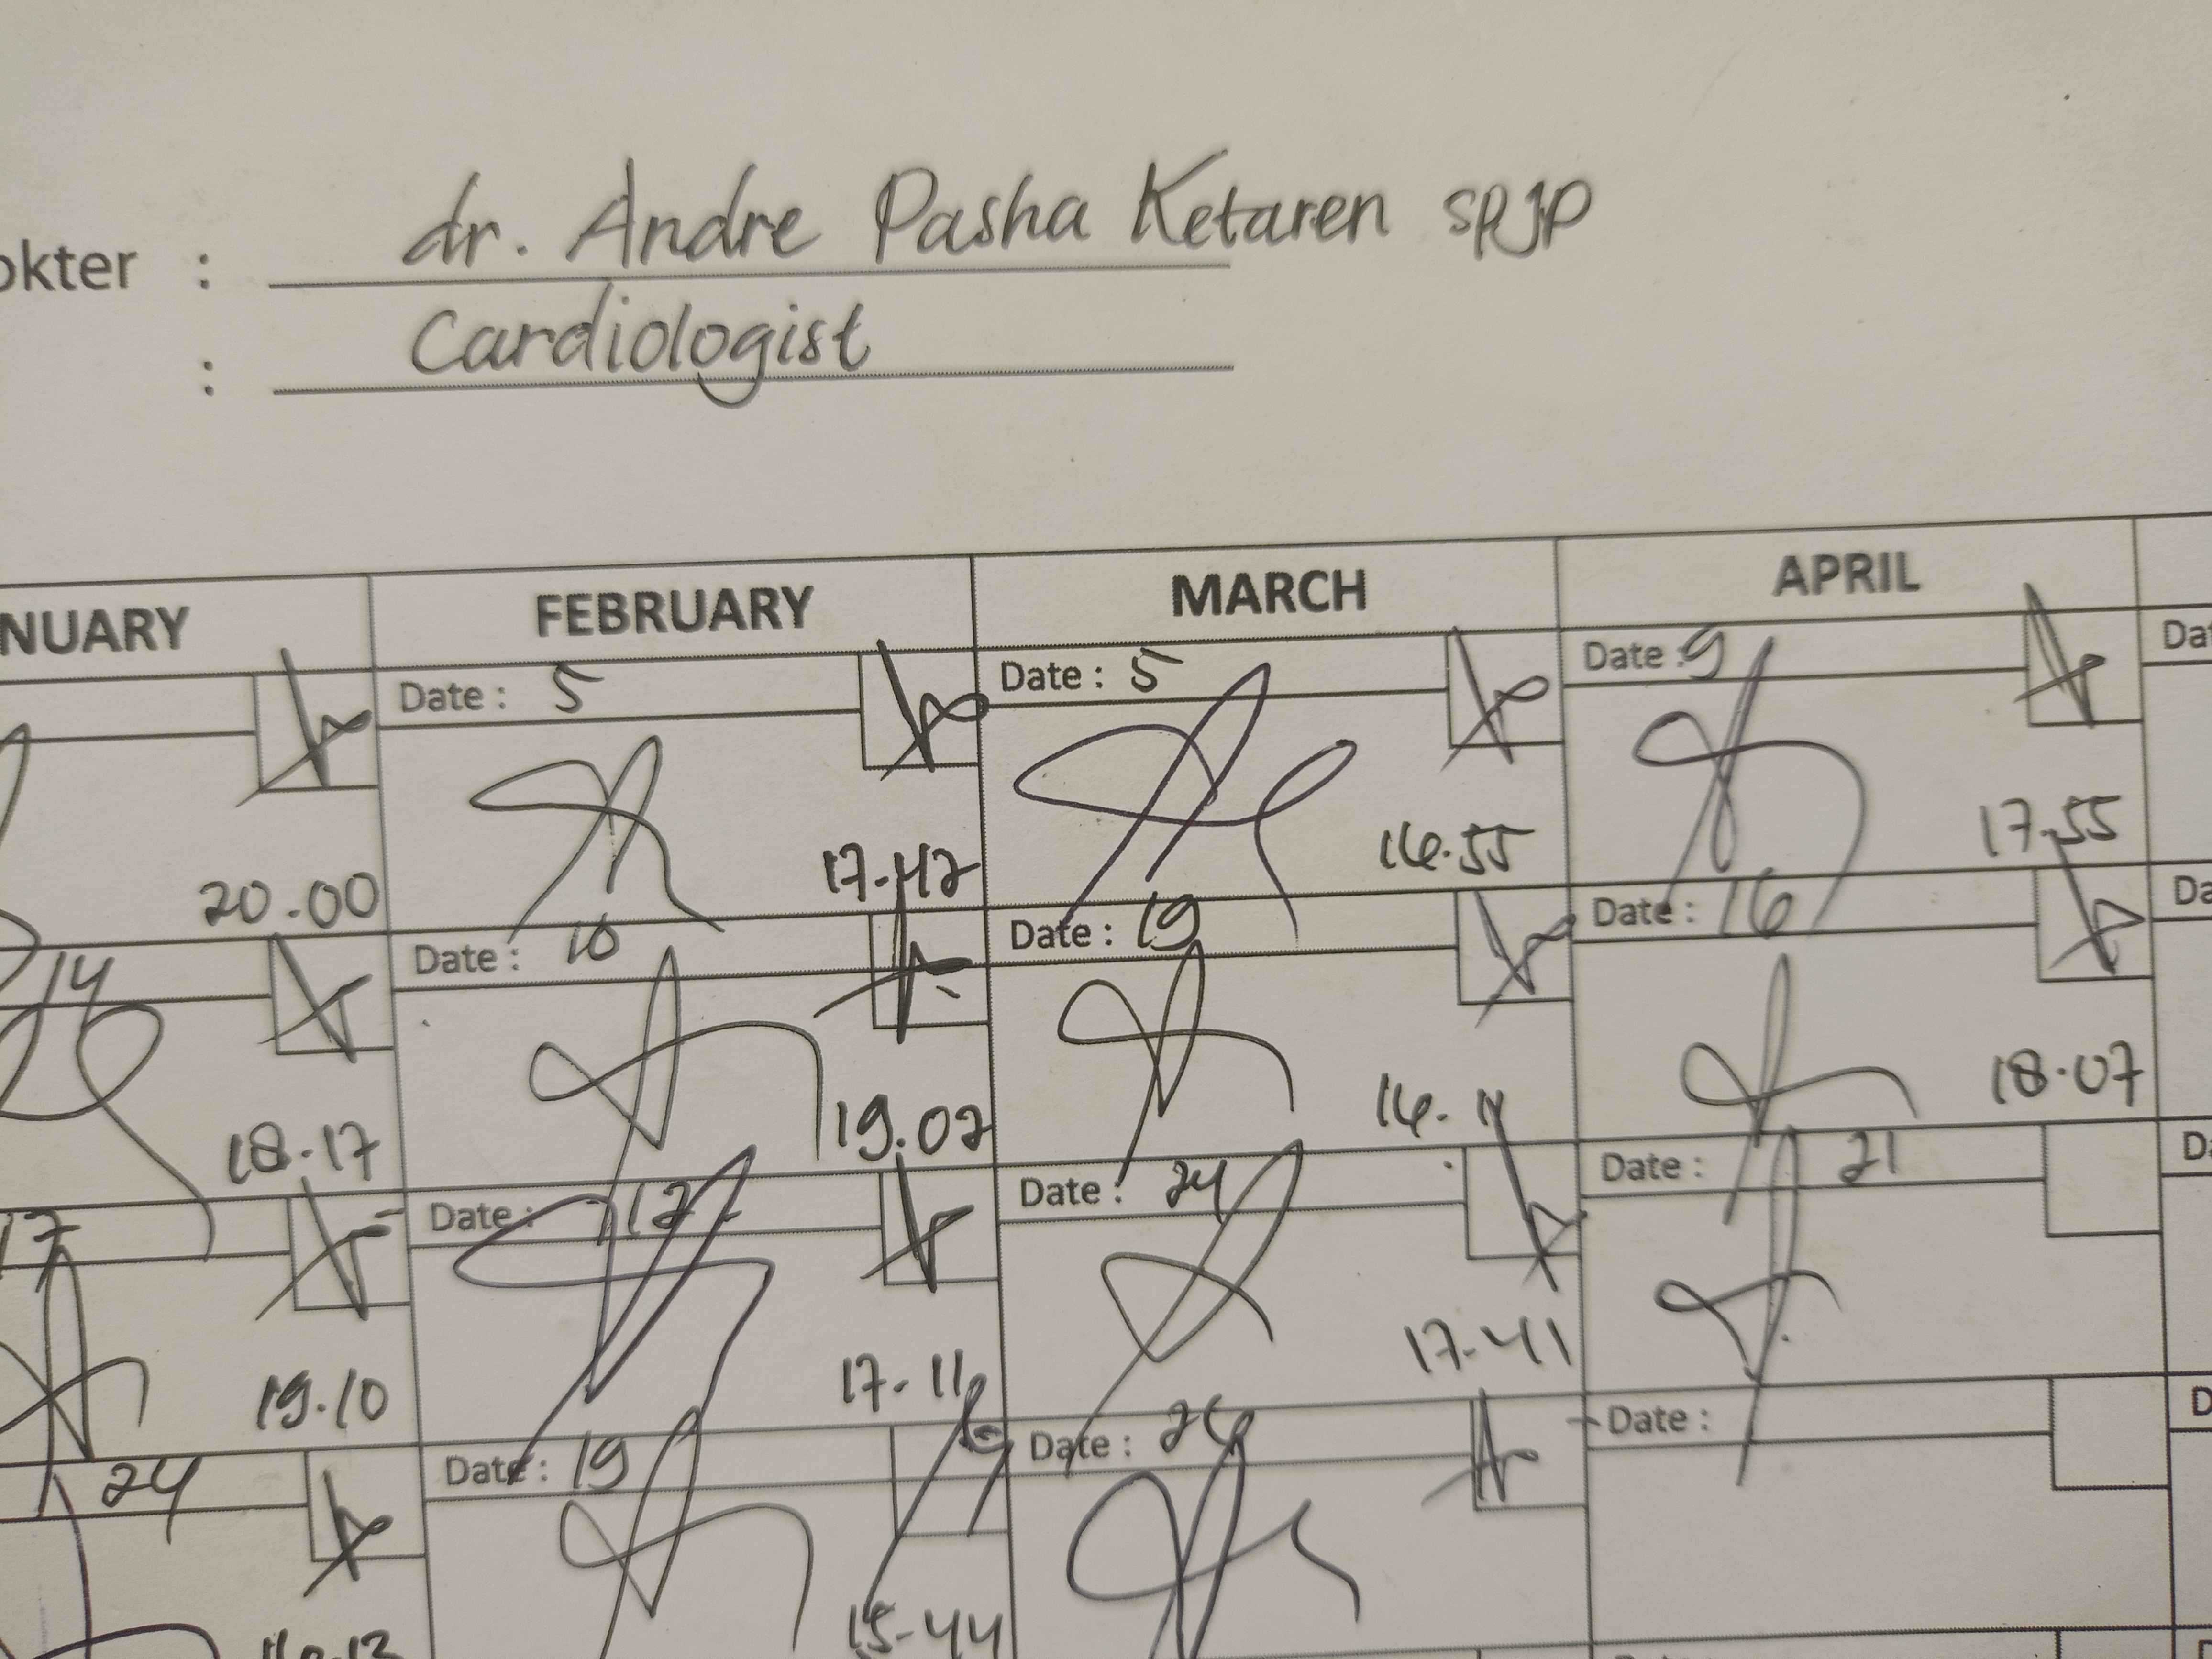 okter : dr. Andre Pasha Ketaren SPJP
: Cardiologist
NUARY FEBRUARY MARCH APRIL
Date : 5 Date : 5 Date : 9 Dat
20.00 17.42 16.55 17.55
14 Date : 10 Date : 19 Date : 16 Da
18.17 19.02 16. 18.07
17 Date : 12 Date : 24 Date : 21 D
19.10 17.11 17.41
24 Date : 19 Date : Date : D
15.44